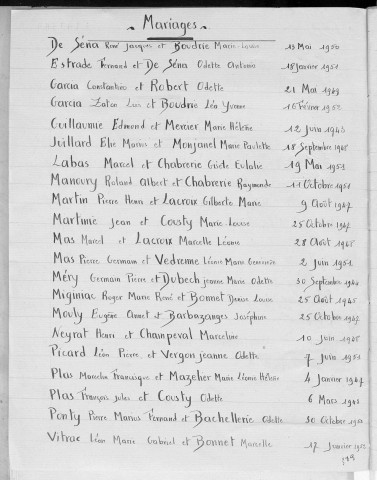 - Mariages -
De Séna René Jacques et Boudrie Marie Louise 19 Mai 1950
Estrade Fernand et De Séna Odette Antonia 18 Janvier 1951
Garcia Constantino et Robert Odette 21 Mai 1949
Garcia Luis et Boudrie Léa Yvonne 1952
Guillaumie Edmond et Mercier Marie Hélène 12 Juin 1943
Juillard Elie Marius et Monjanel Marie Paulette 18 Septembre 1948
Labas Marcel et Chabrerie Gisèle Eulalie 19 Mai 1951
Manoury Roland Albert et Chabrerie Raymonde 11 Octobre 1951
Martin Pierre Henri et Lacroix Gilberte Marie 9 Août 1947
Martinie Jean et Cousty Marie Louise 25 Octobre 1947
Mas Marcel et Lacroix Marcelle Léonie 28 Août 1948
Mas Pierre Germain et Vedrenne Léonie Marie Geneviève 2 Juin 1951
Méry Germain Pierre et Dubech Jeanne Marie Odette 30 Septembre
Migniac Roger Marie René et Bonnet Denise Louise 25 Août 1945
Mouly Eugène Annet et Barbazanges Joséphine 25 Octobre 1947
Neyrat Henri et Champeval Marceline 10 Juin
Picard Léon Pierre et Vergon Jeanne Odette 7 Juin 1951
Plas Marcelin François et Mazelier Marie Léonie Hélène 4 Janvier 1947
Plas François Jules et Cousty Odette 6 Mars 1943
Ponty Pierre Marius Fernand et Bachellerie Odette 30 Octobre
Vitrac Léon Marie Gabriel et Bonnet Marcelle 17 Janvier